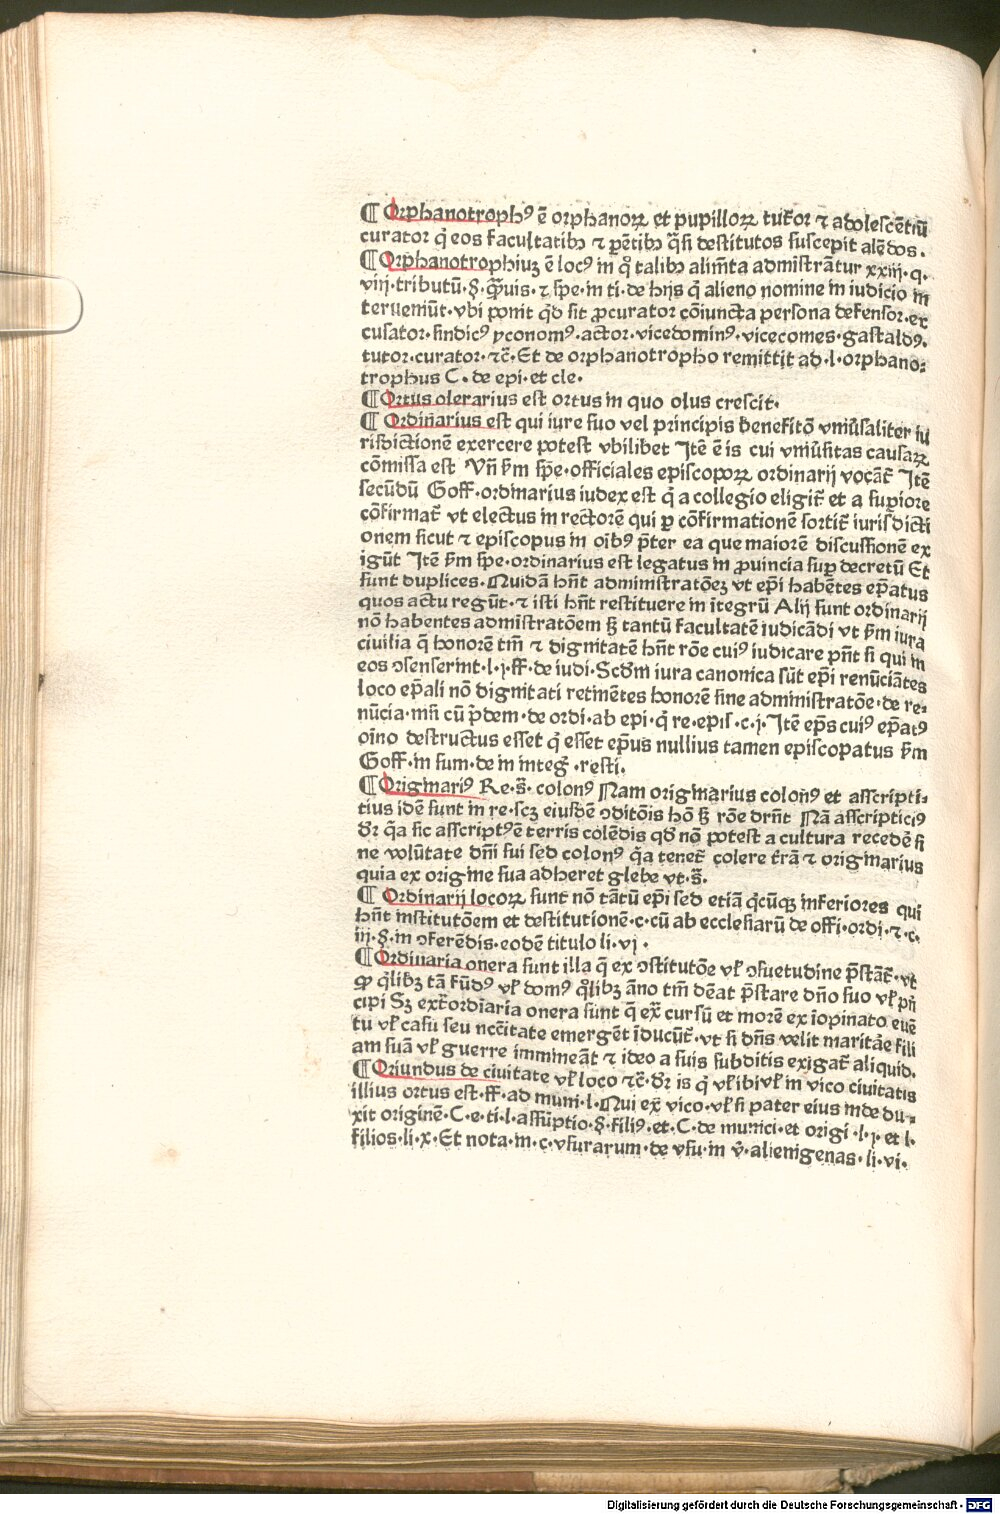 ¶ Orphanotrophꝰ ē orphanoꝝ et pupilloꝝ tutor ⁊ adolescētiū
curator q̄ eos facultatibꝫ ⁊ pētibꝫ q̄si destitutos suscepit alēdos.
¶ Orphanotrophiuꝫ ē locꝰ in q̊ talibꝫ alimēta admistrātur xxiij·q·
viij·tributū·§·q̄uis·⁊ spe·in ti·de hijs q̄ alieno nomine in iudicio in
terueniūt·vbi ponit qd̄ sit ꝓcurator cōiuncta persona defensor·ex
cusator·sindicꝰ yconomꝰ·actor·vicedominꝰ·vicecomes·gastaldꝰ·
tutor·curator·⁊c̄·Et de orphanotropho remittit ad·l·orphano⸗
trophus C·de epi·et cle·
¶ Ortus olerarius est ortus in quo olus crescit·
¶ Ordinarius est qui iure suo vel principis bn̄fitō vniūsaliter iu
risdictionē exercere potest vbilibet Itē ē is cui vniūsitas causaꝝ
cōmissa est Vn̄ ẜm spe·officiales episcopoꝝ ordinarij vocāt̄ Itē
secūdū Goff·ordinarius iudex est q̄ a collegio eligit̄ et a supiore
cōfirmat̄ vt electus in rectorē qui ꝑ cōfirmationē sortit̄ iurisdicti
onem sicut ⁊ episcopus in oībꝰ p̄ter ea que maiorē discussionē ex
igūt Itē ẜm spe·ordinarius est legatus in ꝓuincia sup decretū Et
sunt duplices·Quidā hn̄t administratōeꝫ vt ep̄i habētes ep̄atus
quos actu regūt·⁊ isti hn̄t restituere in ītegrū Alij sunt ordinarij
nō habentes admistratōem ꝫ tantū facultatē iudicādi vt ẜm iura
ciuilia q̄ honorē tm̄ ⁊ dignitatē hn̄t rōe cuiꝰ iudicare pn̄t si qui in
eos ↄsenserint·l·j·ff·de iudi·Scdm̄ iura canonica sūt ep̄i renūciātes
loco ep̄ali nō dignitati retinētes honorē sine administratōe·de re⸗
nūcia·nisi cū p̄dem·de ordi·ab epi·q̄ re·epis·c·j·Itē ep̄s cuiꝰ ep̄atꝰ
oīno destructus esset q̄ esset ep̄us nullius tamen episcopatus ẜm
Goff·in sum·de in inteḡ·resti·
¶ Originariꝰ Re·s̄·colonꝰ Nam originarius colonꝰ et asscripti⸗
tius idē sunt in re·scꝫ eiusdē ↄditōis hō ꝫ rōe drn̄t Nā asscripticiꝰ
dr̄ q̄a sic asscriptꝰē terris colēdis qd̄ nō potest a cultura recedē si
ne volūtate dn̄i sui sed colonꝰ q̄a tenet̄ colere t̄rā ⁊ originarius
quia ex origine sua adheret glebe vt·s̄·
¶ Ordinarij locoꝝ sunt nō tātū ep̄i sed etiā q̄cūqꝫ inferiores qui
hn̄t institutōem et destitutionē·c·cū ab ecclesiarū de offi·ordi·⁊·c·
iij·§·in ↄferēdis·eodē titulo li·vj·
¶ Ordinaria onera sunt illa q̄ ex ↄstitutōe vł ↄsuetudine p̄stāt̄·vt
ꝓ q̄libꝫ tā fūdꝰ vł domꝰ q̄libꝫ āno tm̄ dēat p̄stare dn̄o suo vł pn̄
cipi Sꝫ ext̄ordīaria onera sunt q̄ ex̄ cursū et morē ex īopinato euē
tu vł casu seu ncc̄itate emergēt īducūt̄·vt si dn̄s velit maritāe fili
am suā vł guerre immineāt ⁊ ideo a suis subditis exigat̄ aliquid·
¶ Oriundus de ciuitate vł loco ⁊c̄·dr̄ is q̄ vł ibi vł in vico ciuitatis
illius ortus est·ff·ad muni·l·Qui ex vico·vł si pater eius inde du⸗
xit originē·C·e·ti·l·assūptio·§·filiꝰ·et·C·de munici·et origi·l·j·et l·
filios·li·x·Et nota·in·c·vsurarum·de vsu·in v̄·alienigenas·li·vi·
Digitalisierung gefördert durch die Deutsche Forschungsgemeinschaft · DFG